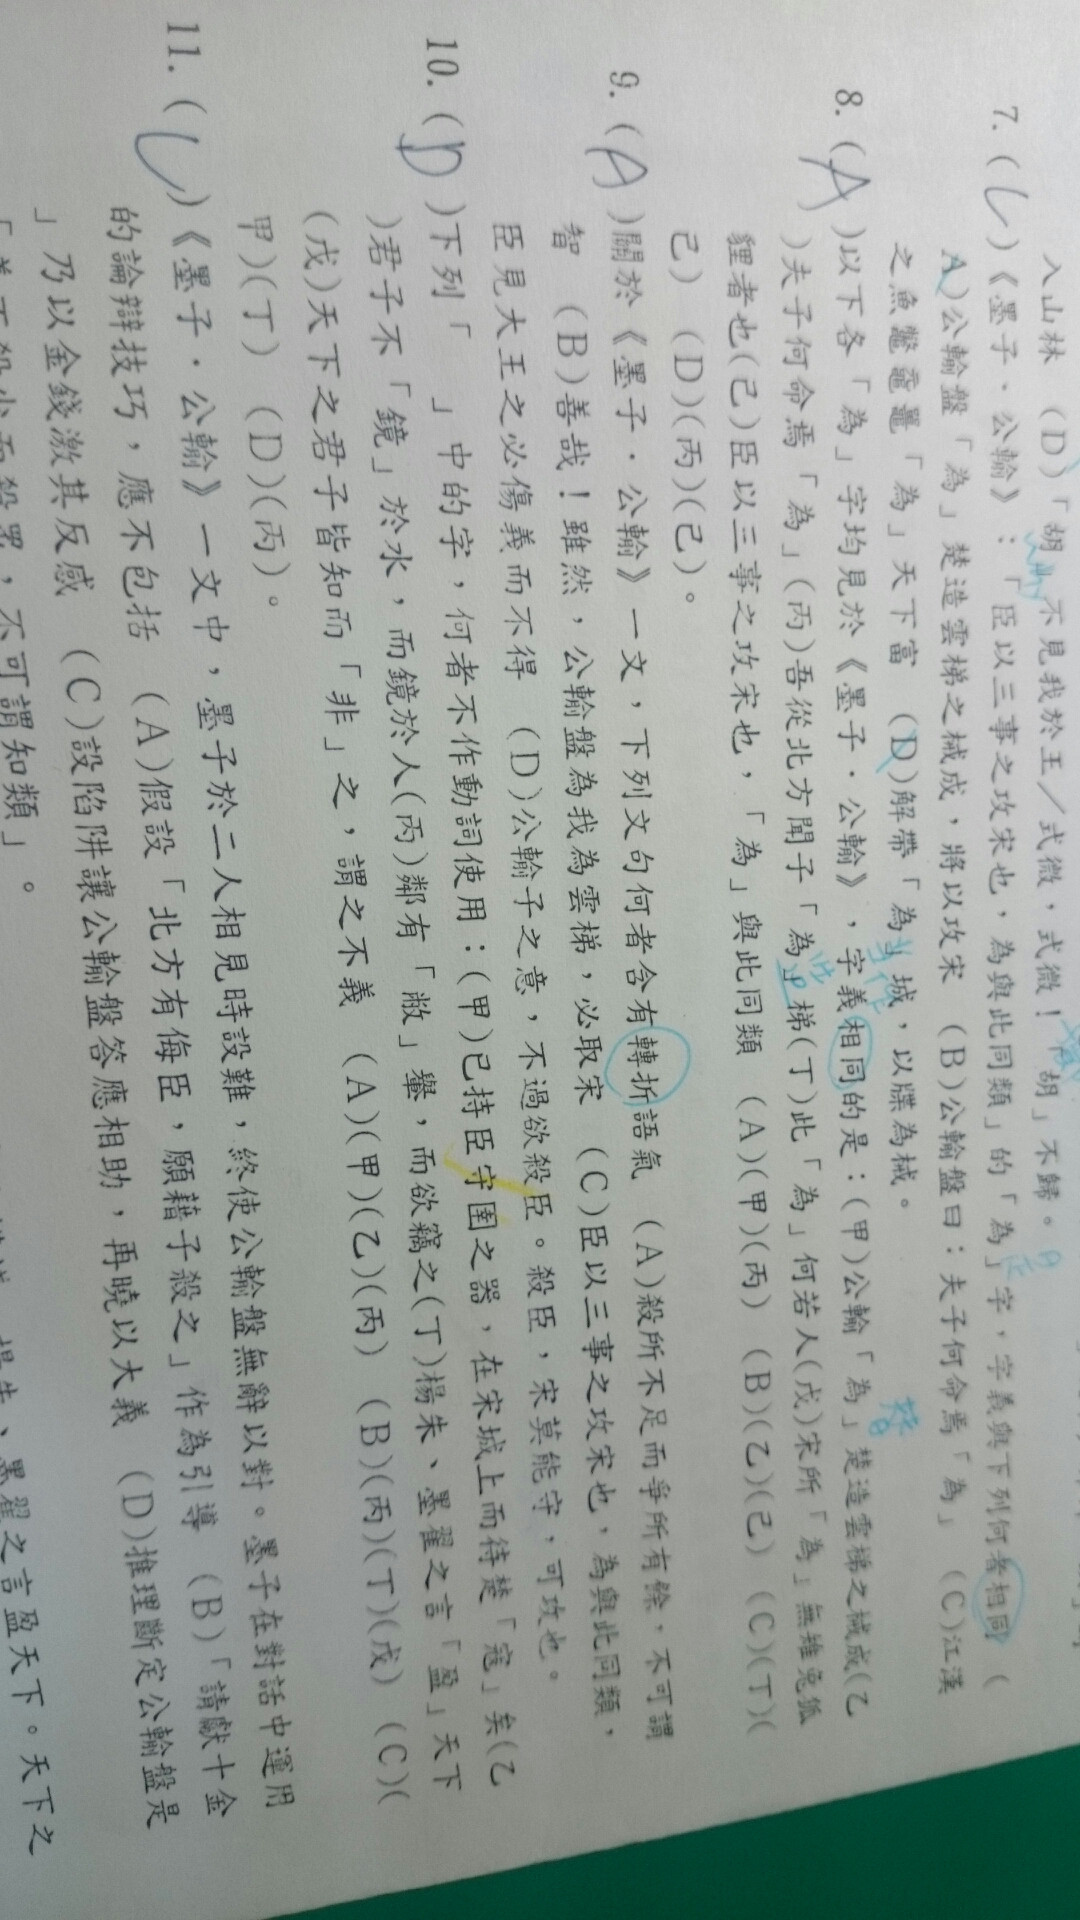 入山林　(D)「胡」不見我於王／式微，式微！「胡」不歸。
7. (C)《墨子．公輸》：「臣以三事之攻宋也，為與此同類」的「為」字，字義與下列何者相同　(
A)公輸盤「為」楚造雲梯之械成，將以攻宋　(B)公輸盤曰：夫子何命焉「為」　(C)江漢
之魚鱉黿鼉「為」天下富　(D)解帶「為」城，以牒為械。
8. (A)以下各「為」字均見於《墨子．公輸》，字義相同的是：(甲)公輸「為」楚造雲梯之械成(乙
)夫子何命焉「為」(丙)吾從北方聞子「為」梯(丁)此「為」何若人(戊)宋所「為」無雉兔狐
貍者也(己)臣以三事之攻宋也，「為」與此同類　(A)(甲)(丙)　(B)(乙)(己)　(C)(丁)(
己)　(D)(丙)(己)。
9. (A)關於《墨子．公輸》一文，下列文句何者含有轉折語氣　(A)殺所不足而爭所有餘，不可謂
智　(B)善哉！雖然，公輸盤為我為雲梯，必取宋　(C)臣以三事之攻宋也，為與此同類，
臣見大王之必傷義而不得　(D)公輸子之意，不過欲殺臣。殺臣，宋莫能守，可攻也。
10. (D)下列「　」中的字，何者不作動詞使用：(甲)已持臣守圉之器，在宋城上而待楚「寇」矣(乙
)君子不「鏡」於水，而鏡於人(丙)鄰有「敝」轝，而欲竊之(丁)楊朱、墨翟之言「盈」天下
(戊)天下之君子皆知而「非」之，謂之不義　(A)(甲)(乙)(丙)　(B)(丙)(丁)(戊)　(C)(
甲)(丁)　(D)(丙)。
11. (C)《墨子．公輸》一文中，墨子於二人相見時設難，終使公輸盤無辭以對。墨子在對話中運用
的論辯技巧，應不包括　(A)假設「北方有侮臣，願藉子殺之」作為引導　(B)「請獻十金
」乃以金錢激其反感　(C)設陷阱讓公輸盤答應相助，再曉以大義　(D)推理斷定公輸盤是
「義不殺少而殺眾，不可謂知類」。
墨翟之言盈天下。天下之